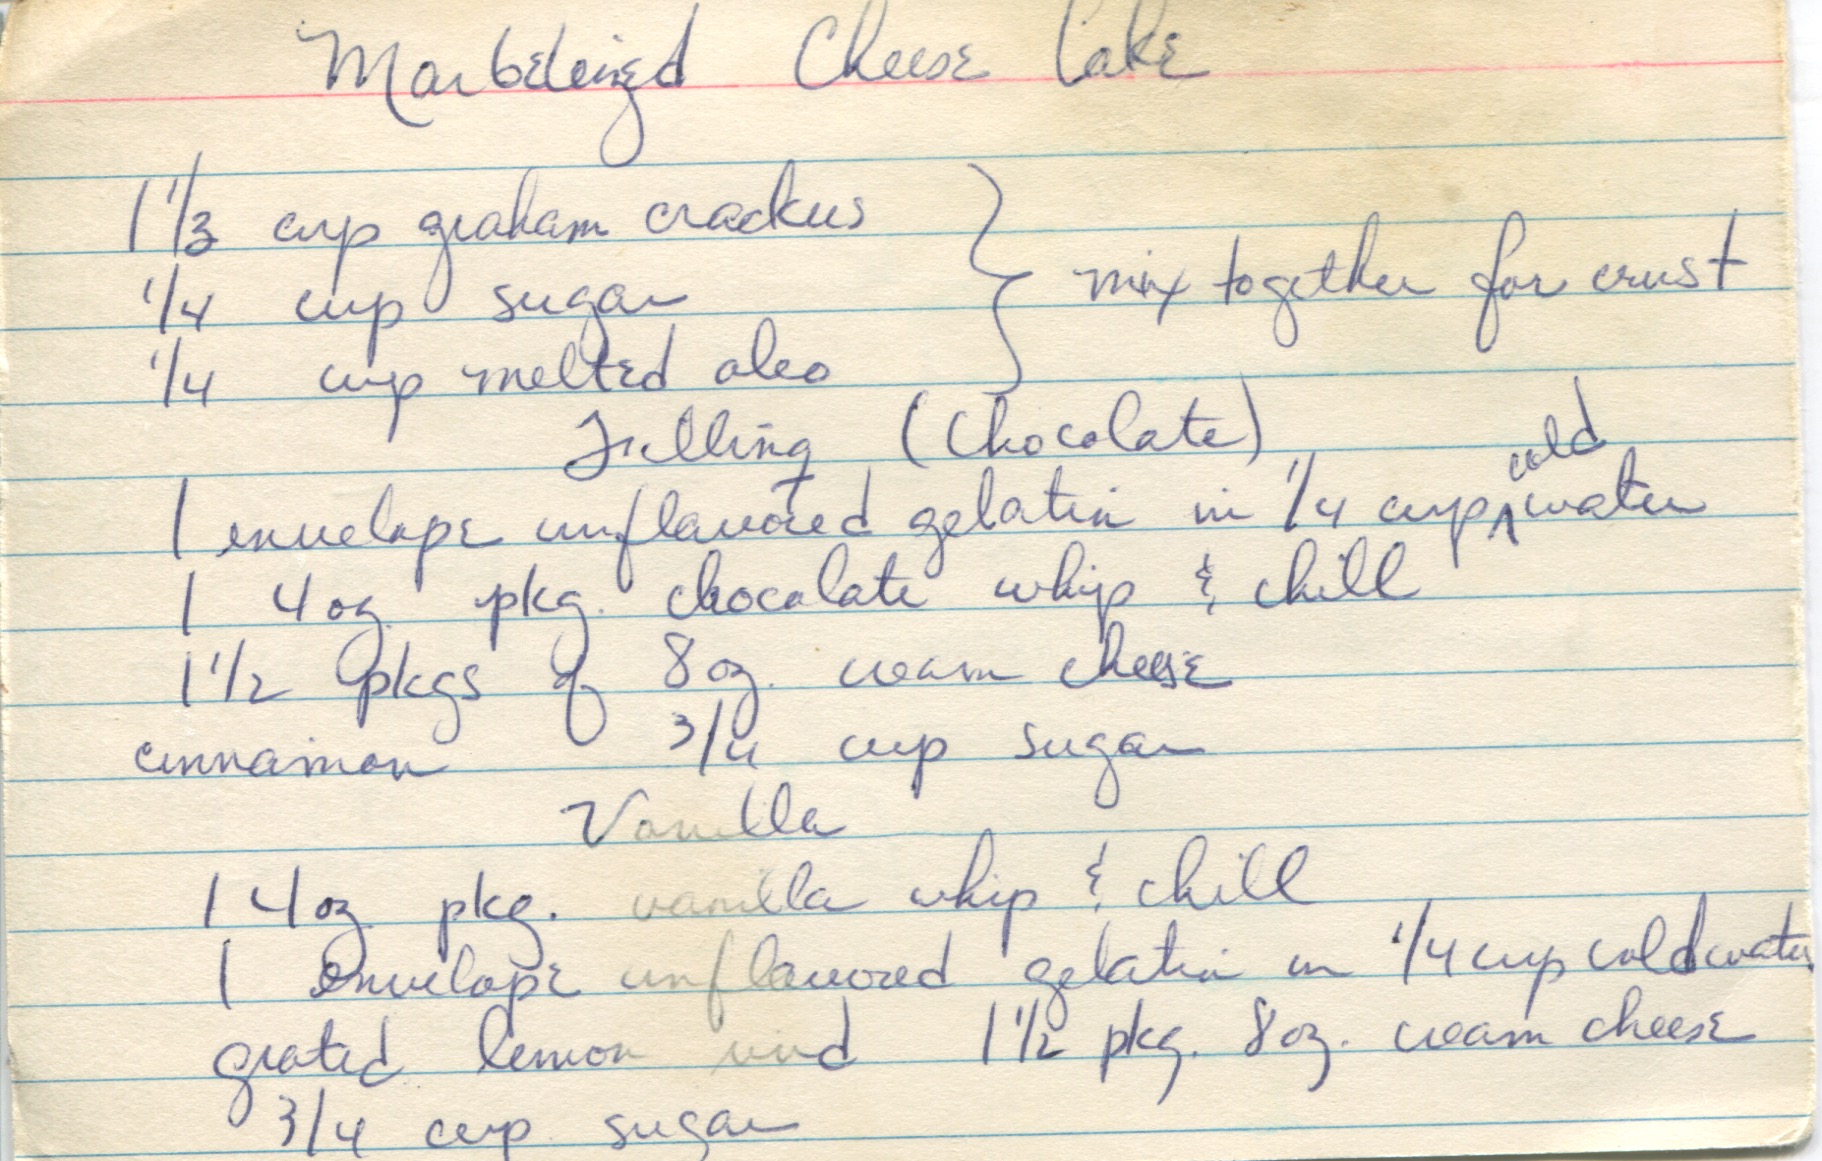 Marbeleized Cheese Cake
1 1/3 cup graham crackers
1/4 cup sugar } mix together for crust
1/4 cup melted oleo
Filling (Chocolate)
1 envelope unflavored gelatin in 1/4 cup cold water
1 4 oz pkg. chocolate whip & chill
1 1/2 pkgs of 8 oz. cream cheese
cinnamon 3/4 cup sugar
Vanilla
1 4 oz pkg. vanilla whip & chill
1 envelope unflavored gelatin in 1/4 cup cold water
grated lemon rind 1 1/2 pkg. 8 oz. cream cheese
3/4 cup sugar